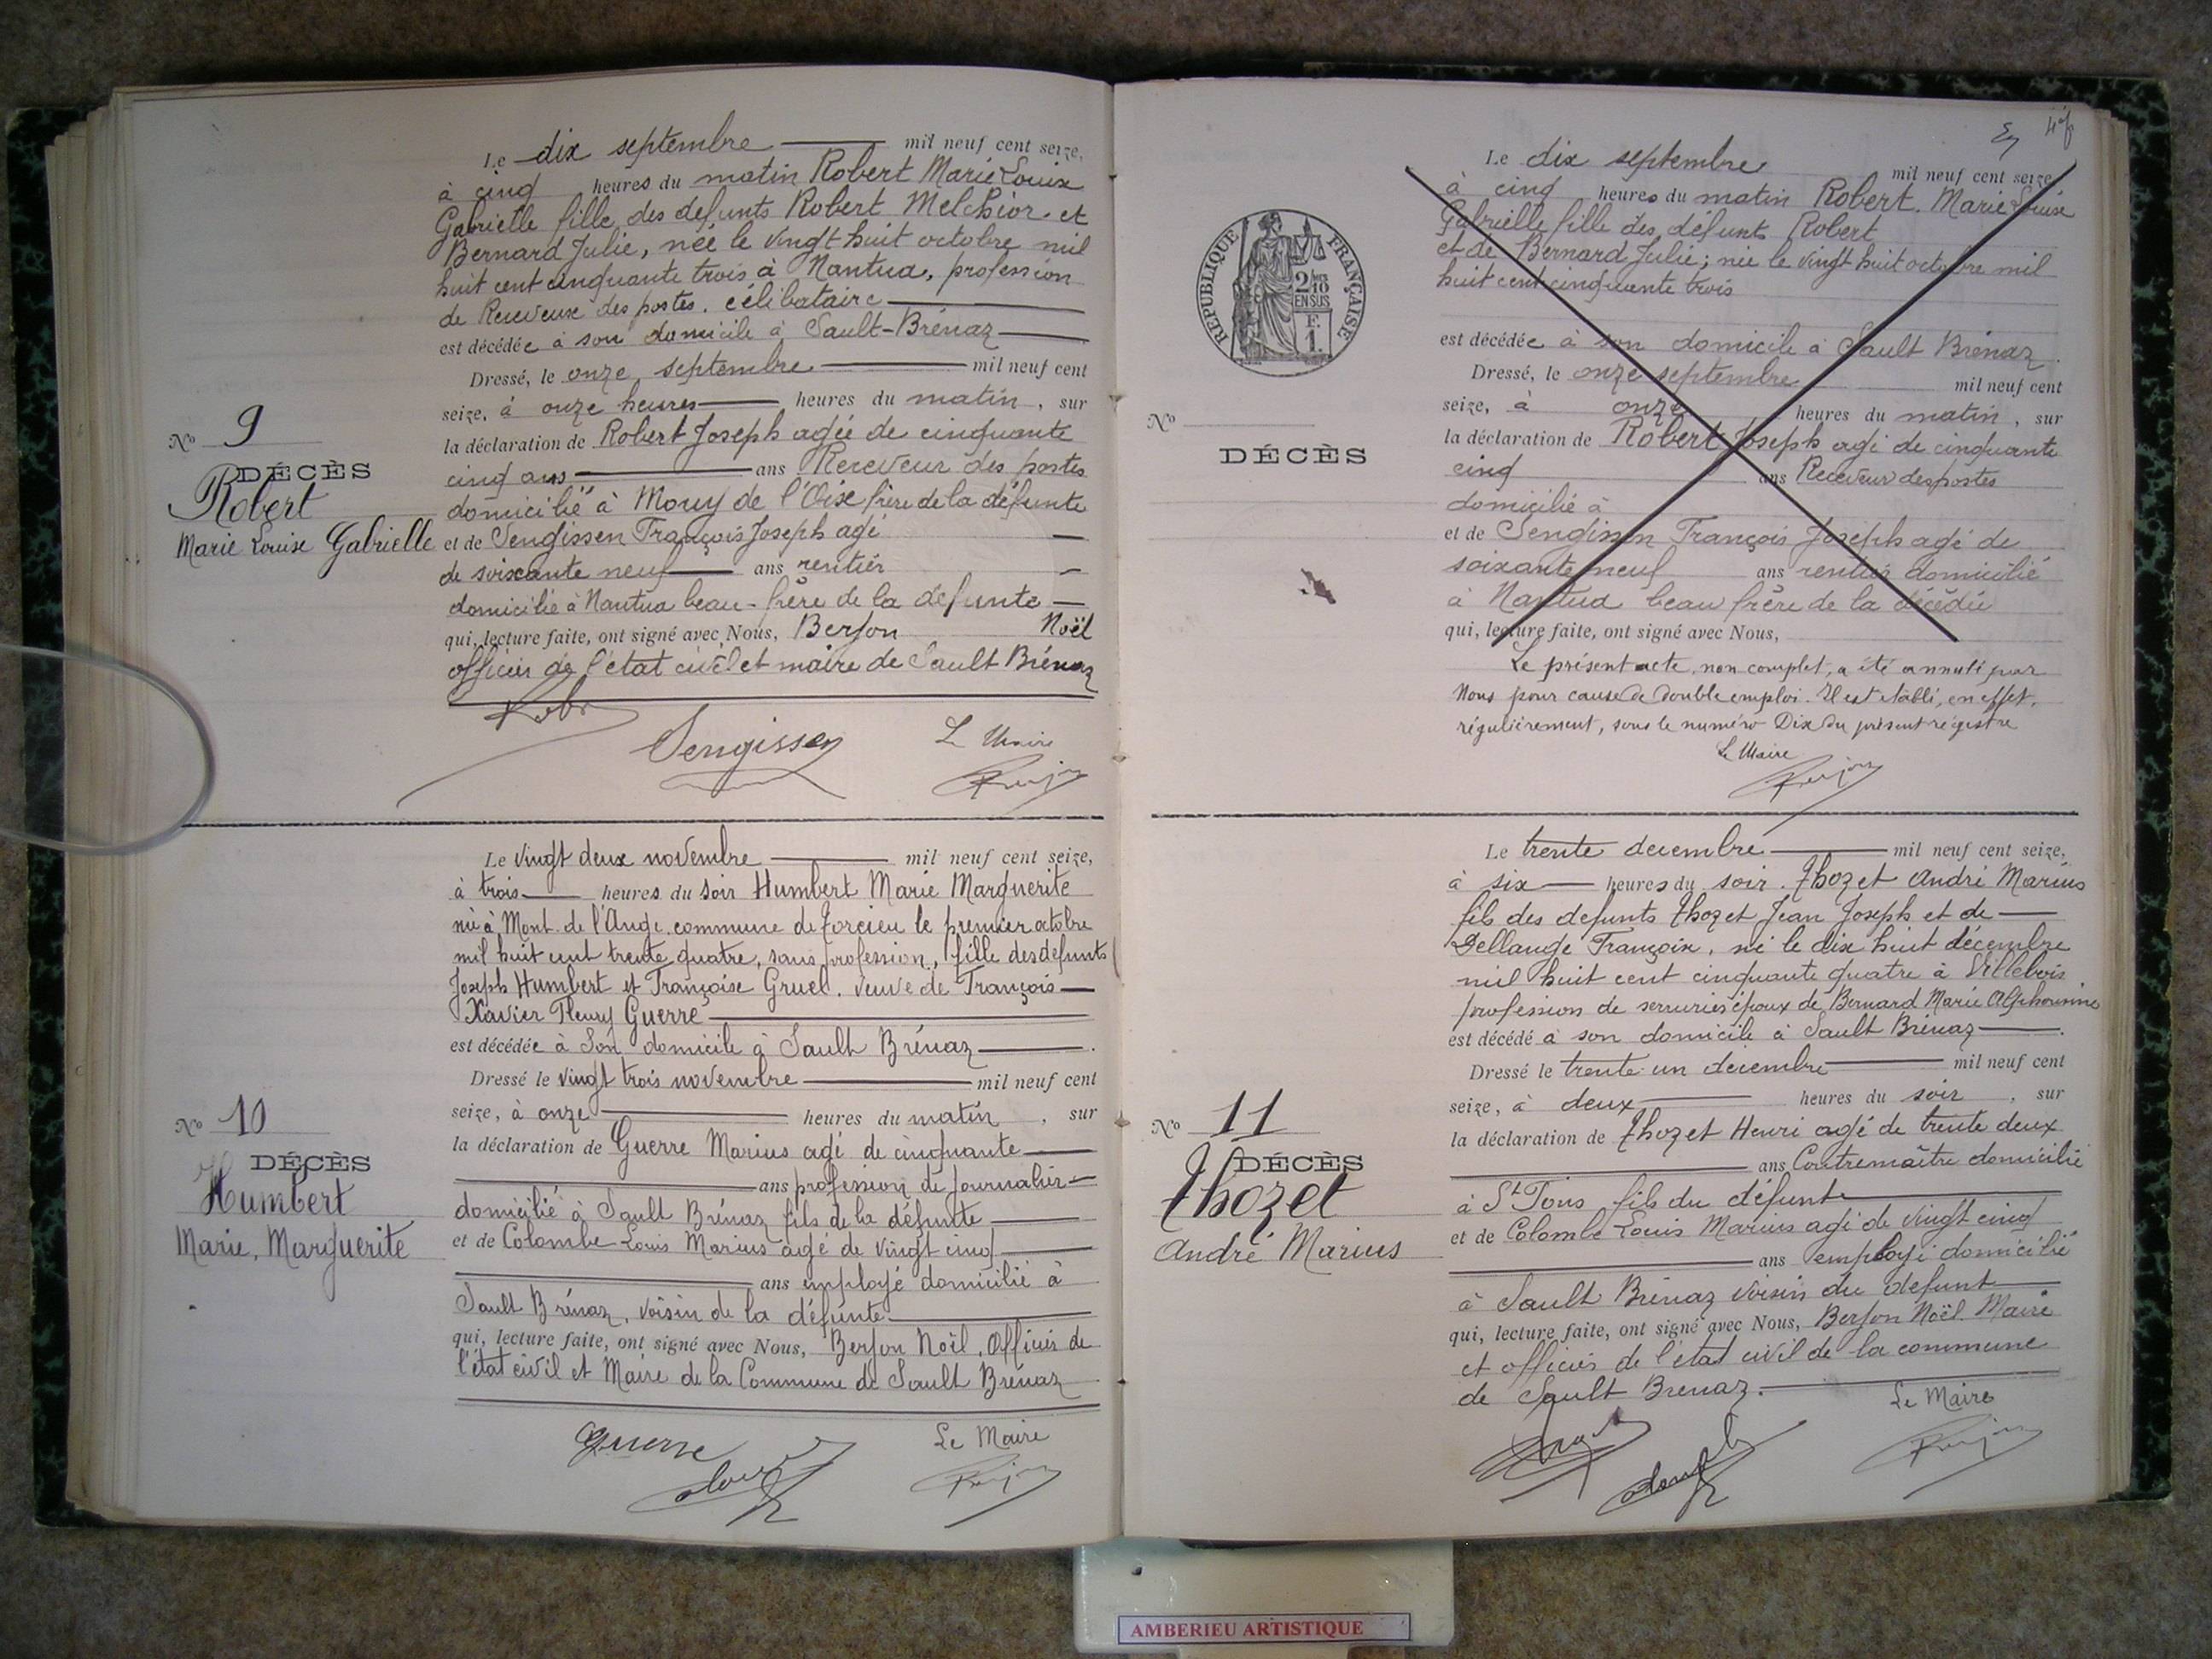 Le dix septembre mil neuf cent seize,
à cinq heures du matin Robert Marie Louise
Gabrielle fille des defunts Robert Melchior et
Bernard Julie, née le vingt huit octobre mil
huit cent cinquante trois à Nantua, profession
de Receveuse des postes. célibataire
est décédée à son domicile à Sault-Brénaz
Dressé, le onze septembre mil neuf cent
seize, à onze heures heures du matin, sur
la déclaration de Robert Joseph agée de cinquante
cinq ans ans Receveur des postes
domicilié à Mouy de l'Oise frère de la défunte
et de Sengissen François Joseph agé
de soixante neuf ans rentier
domicilié à Nantua beau-frère de la défunte
qui, lecture faite, ont signé avec Nous, Berjon Noël
officier de l'état civil et maire de Sault Brénaz
Sengissen
Le Maire
Nº 9
DÉCÈS
Robert
Marie Louise Gabrielle
Le vingt deux novembre mil neuf cent seize,
à trois heures du soir Humbert Marie Marguerite
née à Mont de l'Ange commune de Torcieu le premier octobre
mil huit cent trente quatre, sans profession, fille des defunts
Joseph Humbert et Françoise Gruel. Veuve de François
Xavier Fleury Guerre
est décédée à Son domicile à Sault Brénaz.
Dressé le vingt trois novembre mil neuf cent
seize, à onze heures du matin, sur
la déclaration de Guerre Marius agé de cinquante
ans profession de journalier
domicilié à Sault Brénaz fils de la défunte
et de Colombe Louis Marius agé de vingt cinq
ans employé domicilié à
Sault Brénaz, voisin de la défunte
qui, lecture faite, ont signé avec Nous, Berjon Noël, Officier de
l'état civil et Maire de la Commune de Sault Brénaz
Guerre
Le Maire
Nº 10
DÉCÈS
Humbert
Marie, Marguerite
Le dix septembre mil neuf cent seize
à cinq heures du matin Robert. Marie Louise
Gabrielle fille des défunts Robert
et de Bernard Julie; née le vingt huit octobre mil
huit cent cinquante trois
est décédée à son domicile à Sault Brénaz.
Dressé, le onze septembre mil neuf cent
seize, à onze heures du matin, sur
la déclaration de Robert Joseph agé de cinquante
cinq ans Receveur des postes
domicilié à
et de Sengissen François Joseph agé de
soixante neuf ans rentier domicilié
à Nantua beau frère de la décédée
qui, lecture faite, ont signé avec Nous,
Le présent acte, non complet, a été annulé par
Nous pour cause de double emploi. Il est établi, en effet,
régulièrement, sous le numéro Dix du présent registre
Le Maire
RÉPUBLIQUE FRANÇAISE
2/10
EN SUS
F.
1.
Nº
DÉCÈS
Le trente decembre mil neuf cent seize,
à six heures du soir. Thozet André Marius
fils des defunts Thozet Jean Joseph et de
Dellauge Françoise, né le dix huit décembre
mil huit cent cinquante quatre à Villebois
profession de serrurier époux de Bernard Marie Alphonsine
est décédé à son domicile à Sault Brénaz.
Dressé le trente un decembre mil neuf cent
seize, à deux heures du soir, sur
la déclaration de Thozet Henri agé de trente deux
ans Contremaître domicilié
à St Fons fils du défunt
et de Colombe Louis Marius agé de vingt cinq
ans employé domicilié
à Sault Brénaz voisin du defunt
qui, lecture faite, ont signé avec Nous, Berjon Noël Maire
et officier de l'état civil de la commune
de Sault Brenaz.
Le Maire
Nº 11
DÉCÈS
Thozet
André Marius
AMBERIEU ARTISTIQUE